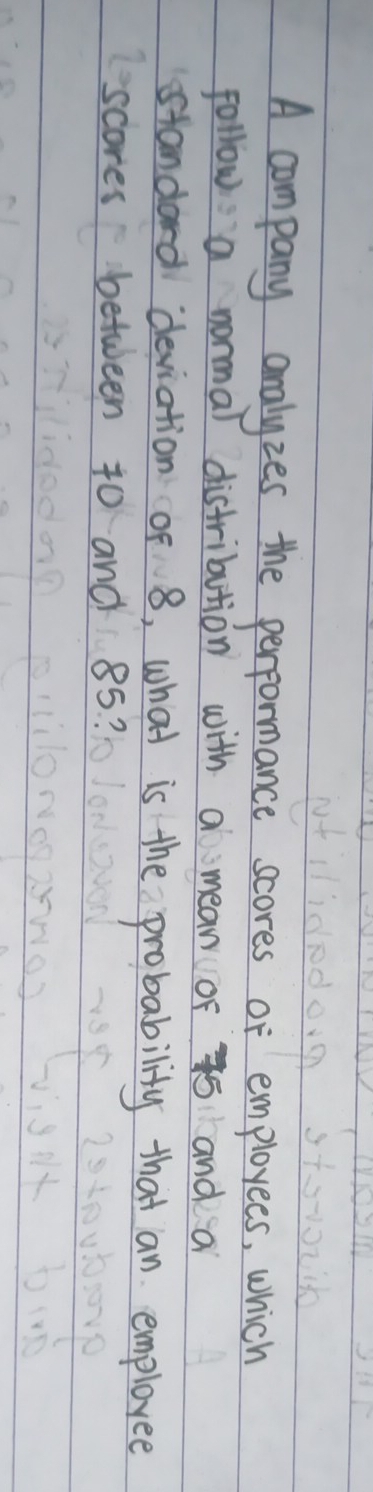 A company analyzes the performance scores of employees, which
follow a normal distribution with a mean of 75 and a
standard deviation of 8, what is the probability that an employee
scores between 70 and 85?